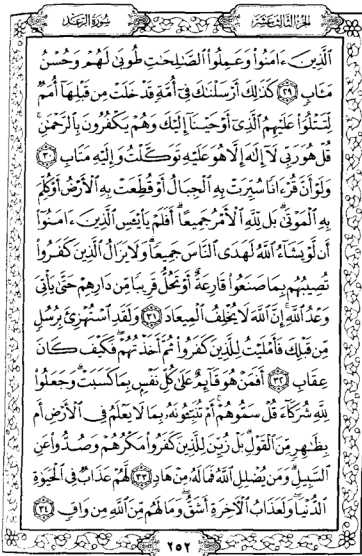 الجزء الثالث عشر
سورة الرعد
ٱلَّذِينَ ءَامَنُوا۟ وَعَمِلُوا۟ ٱلصَّٰلِحَٰتِ طُوبَىٰ لَهُمْ وَحُسْنُ
مَـَٔابٍ ٢٩ كَذَٰلِكَ أَرْسَلْنَٰكَ فِىٓ أُمَّةٍ قَدْ خَلَتْ مِن قَبْلِهَآ أُمَمٌ
لِّتَتْلُوَا۟ عَلَيْهِمُ ٱلَّذِىٓ أَوْحَيْنَآ إِلَيْكَ وَهُمْ يَكْفُرُونَ بِٱلرَّحْمَٰنِ ۚ
قُلْ هُوَ رَبِّى لَآ إِلَٰهَ إِلَّا هُوَ عَلَيْهِ تَوَكَّلْتُ وَإِلَيْهِ مَتَابِ ٣٠
وَلَوْ أَنَّ قُرْءَانًا سُيِّرَتْ بِهِ ٱلْجِبَالُ أَوْ قُطِّعَتْ بِهِ ٱلْأَرْضُ أَوْ كُلِّمَ
بِهِ ٱلْمَوْتَىٰ ۗ بَل لِّلَّهِ ٱلْأَمْرُ جَمِيعًا ۗ أَفَلَمْ يَا۟يْـَٔسِ ٱلَّذِينَ ءَامَنُوٓا۟
أَن لَّوْ يَشَآءُ ٱللَّهُ لَهَدَى ٱلنَّاسَ جَمِيعًا ۗ وَلَا يَزَالُ ٱلَّذِينَ كَفَرُوا۟
تُصِيبُهُم بِمَا صَنَعُوا۟ قَارِعَةٌ أَوْ تَحُلُّ قَرِيبًا مِّن دَارِهِمْ حَتَّىٰ يَأْتِىَ
وَعْدُ ٱللَّهِ ۚ إِنَّ ٱللَّهَ لَا يُخْلِفُ ٱلْمِيعَادَ ٣١ وَلَقَدِ ٱسْتُهْزِئَ بِرُسُلٍ
مِّن قَبْلِكَ فَأَمْلَيْتُ لِلَّذِينَ كَفَرُوا۟ ثُمَّ أَخَذْتُهُمْ ۖ فَكَيْفَ كَانَ
عِقَابِ ٣٢ أَفَمَنْ هُوَ قَآئِمٌ عَلَىٰ كُلِّ نَفْسٍۭ بِمَا كَسَبَتْ ۗ وَجَعَلُوا۟
لِلَّهِ شُرَكَآءَ قُلْ سَمُّوهُمْ ۚ أَمْ تُنَبِّـُٔونَهُۥ بِمَا لَا يَعْلَمُ فِى ٱلْأَرْضِ أَم
بِظَٰهِرٍ مِّنَ ٱلْقَوْلِ ۗ بَلْ زُيِّنَ لِلَّذِينَ كَفَرُوا۟ مَكْرُهُمْ وَصُدُّوا۟ عَنِ
ٱلسَّبِيلِ ۗ وَمَن يُضْلِلِ ٱللَّهُ فَمَا لَهُۥ مِنْ هَادٍ ٣٣ لَّهُمْ عَذَابٌ فِى ٱلْحَيَوٰةِ
ٱلدُّنْيَا ۖ وَلَعَذَابُ ٱلْـَٔاخِرَةِ أَشَقُّ ۖ وَمَا لَهُم مِّنَ ٱللَّهِ مِن وَاقٍ ٣٤
٢٥٢